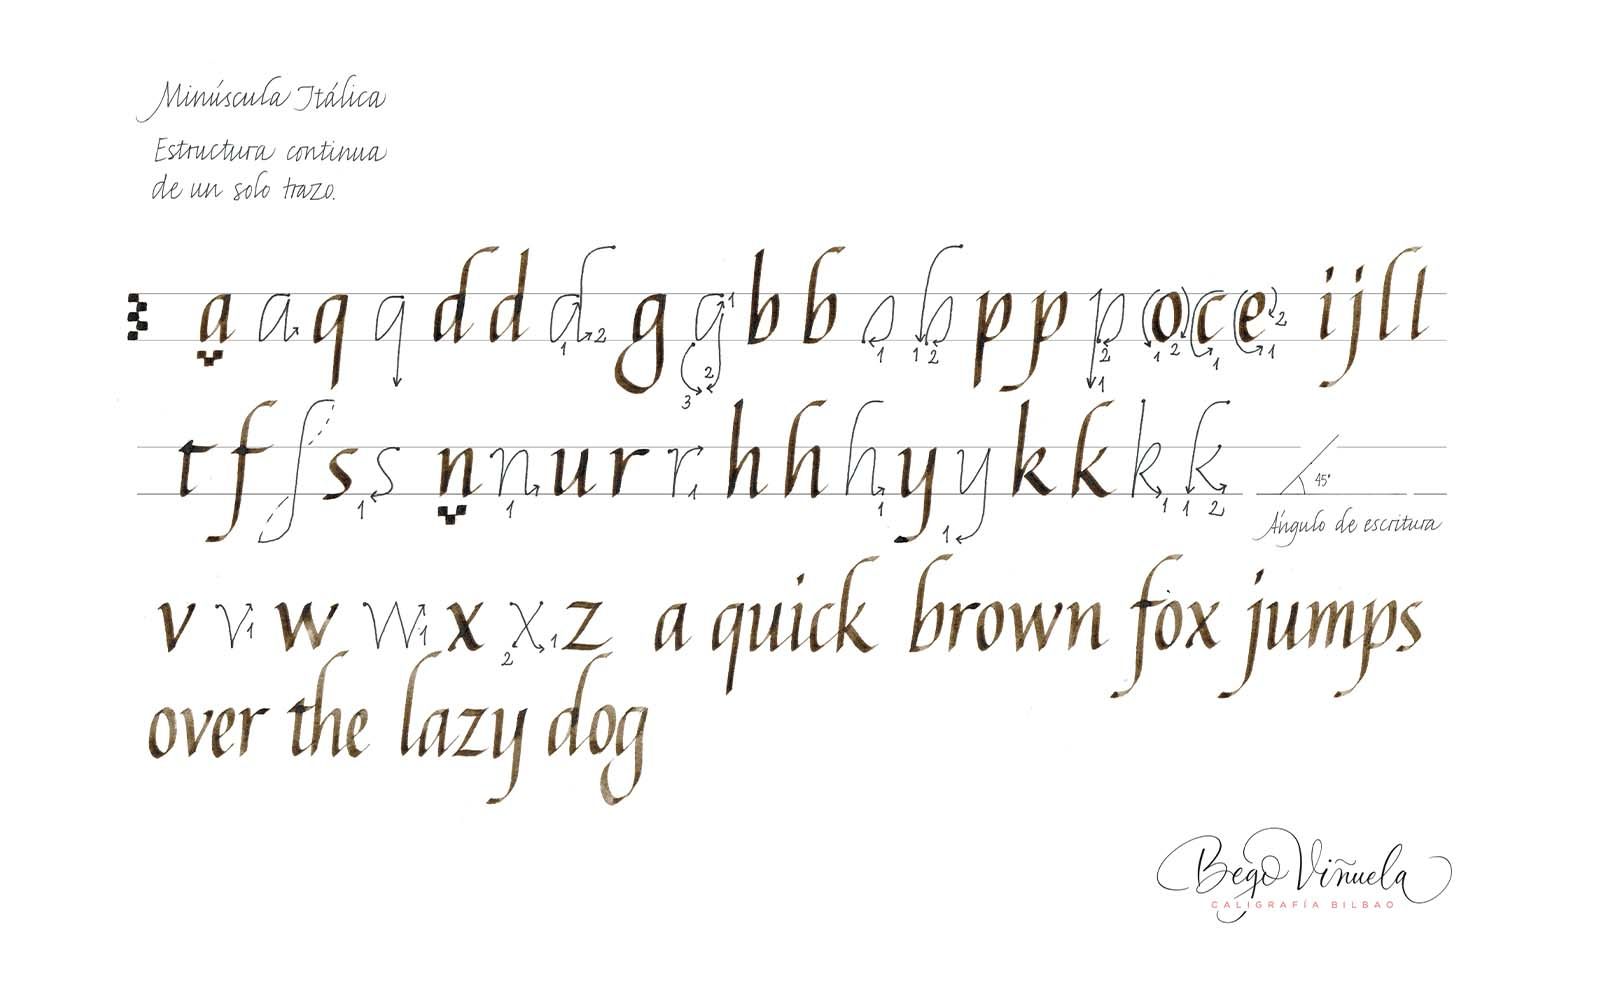 Minúscula Itálica
Estructura continua
de un solo trazo.
a a q q d d d 1 2 g g 1 2 3 b b b 1 b 1 2 p p p 1 2 o 1 2 c 1 e 1 2 i j l l
t f f s s 1 n n 1 u r r 1 h h h 1 y y 1 k k k 1 k 1 2 45°
Ángulo de escritura
v v 1 w w 1 x x 1 2 z a quick brown fox jumps
over the lazy dog
Bego Viñuela
CALIGRAFÍA BILBAO